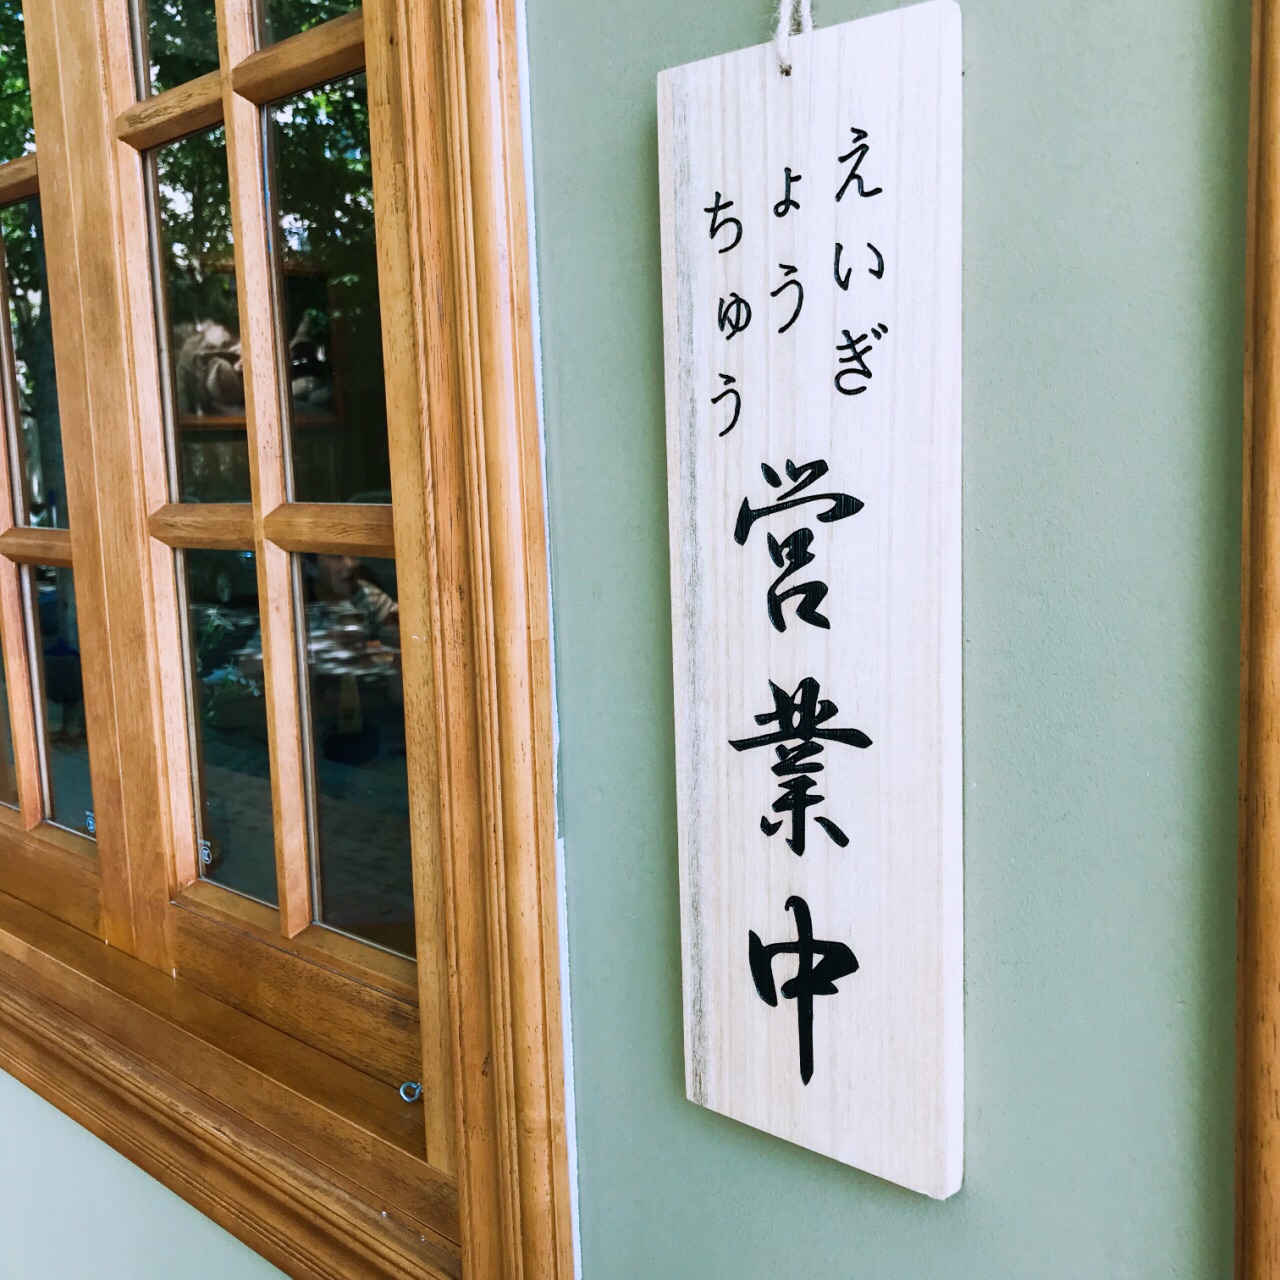 えいぎ
ょうう
ちゅう
営業中